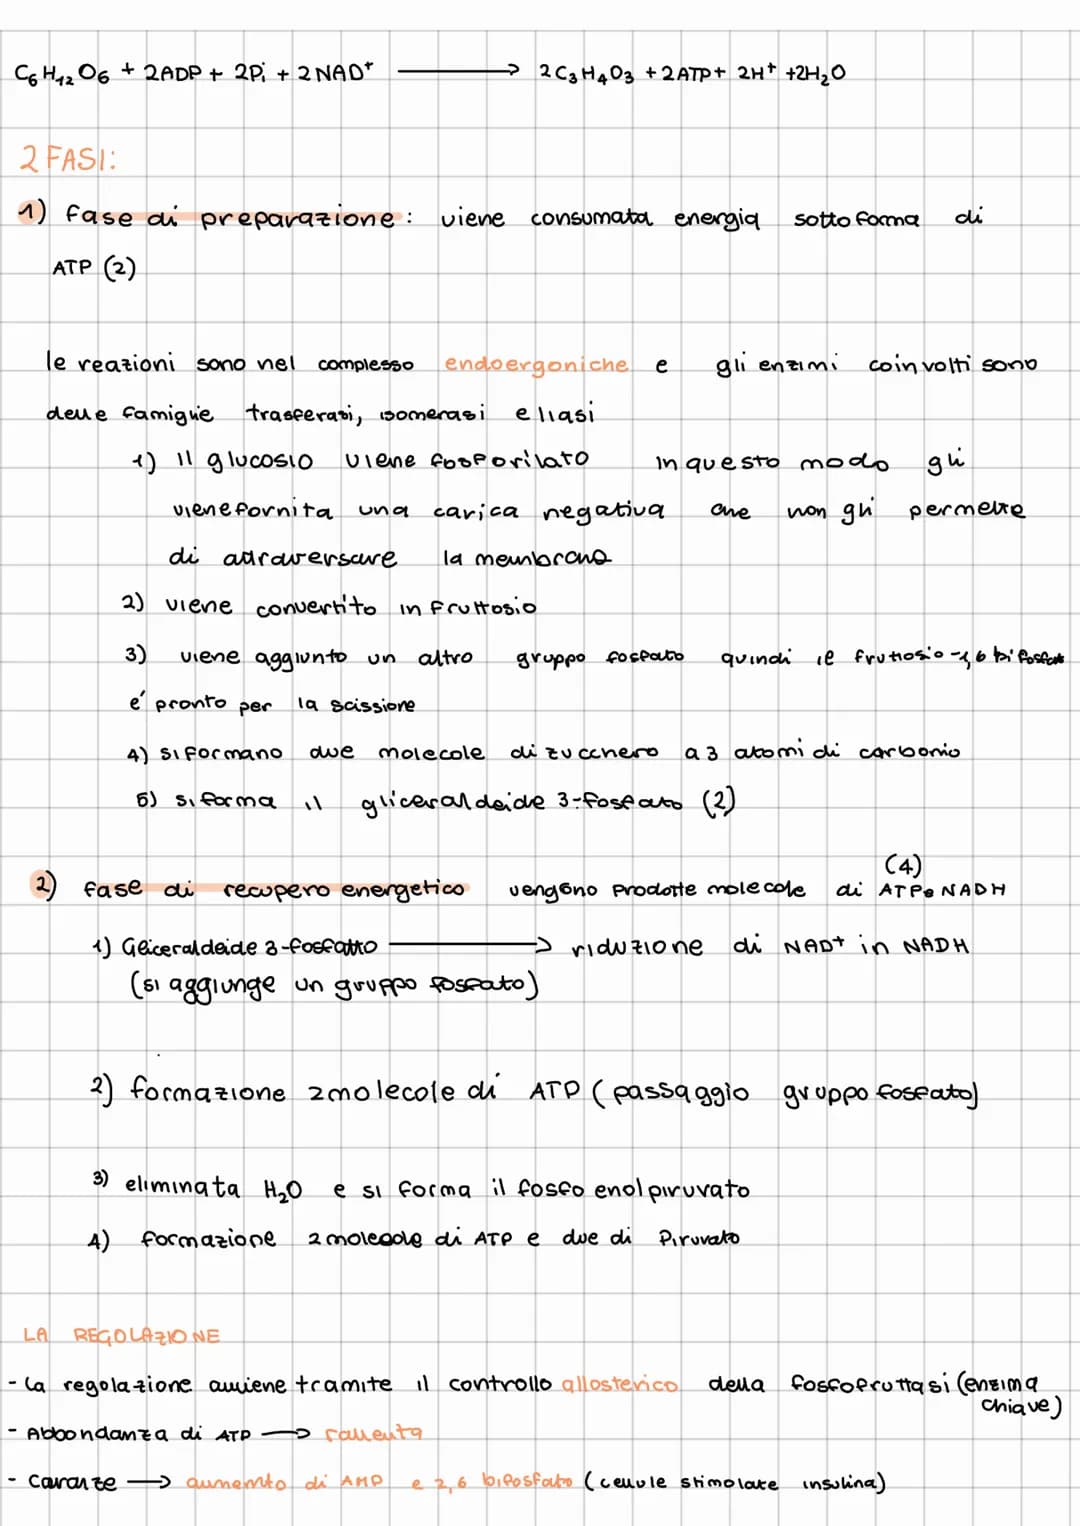 C6H12O6 + 2ADP + 2Pi + 2NAD+ ⟶ 2C3H4O3 + 2ATP + 2H+ +2H2O
2 FASI:
1) fase di preparazione: viene consumata energia sotto forma di
ATP (2)
le reazioni sono nel complesso endoergoniche e gli enzimi coinvolti sono
delle famiglie trasferasi, isomerasi e liasi
1) il glucosio viene fosforilato in questo modo gli
viene fornita una carica negativa che non gli permette
di attraversare la membrana
2) viene convertito in fruttosio
3) viene aggiunto un altro gruppo fosfato quindi il fruttosio-1,6 bifosfato
e' pronto per la scissione
4) si formano due molecole di zucchero a 3 atomi di carbonio
5) si forma il gliceraldeide 3-fosfato (2)
(4)
2) fase di recupero energetico vengono prodotte molecole di ATP e NADH
1) Gliceraldeide 3-fosfatto ⟶ riduzione di NAD+ in NADH
(si aggiunge un gruppo fosfato)
2) formazione 2 molecole di ATP (passaggio gruppo fosfato)
3) eliminata H2O e si forma il fosfoenolpiruvato
4) formazione 2 molecole di ATP e due di Piruvato
LA REGOLAZIONE
- la regolazione avviene tramite il controllo allosterico della fosfofruttasi (enzima
chiave)
- Abbondanza di ATP ⟶ rallenta
- Caranze ⟶ aumento di AMP e 2,6 bifosfato (cellule stimolate insulina)